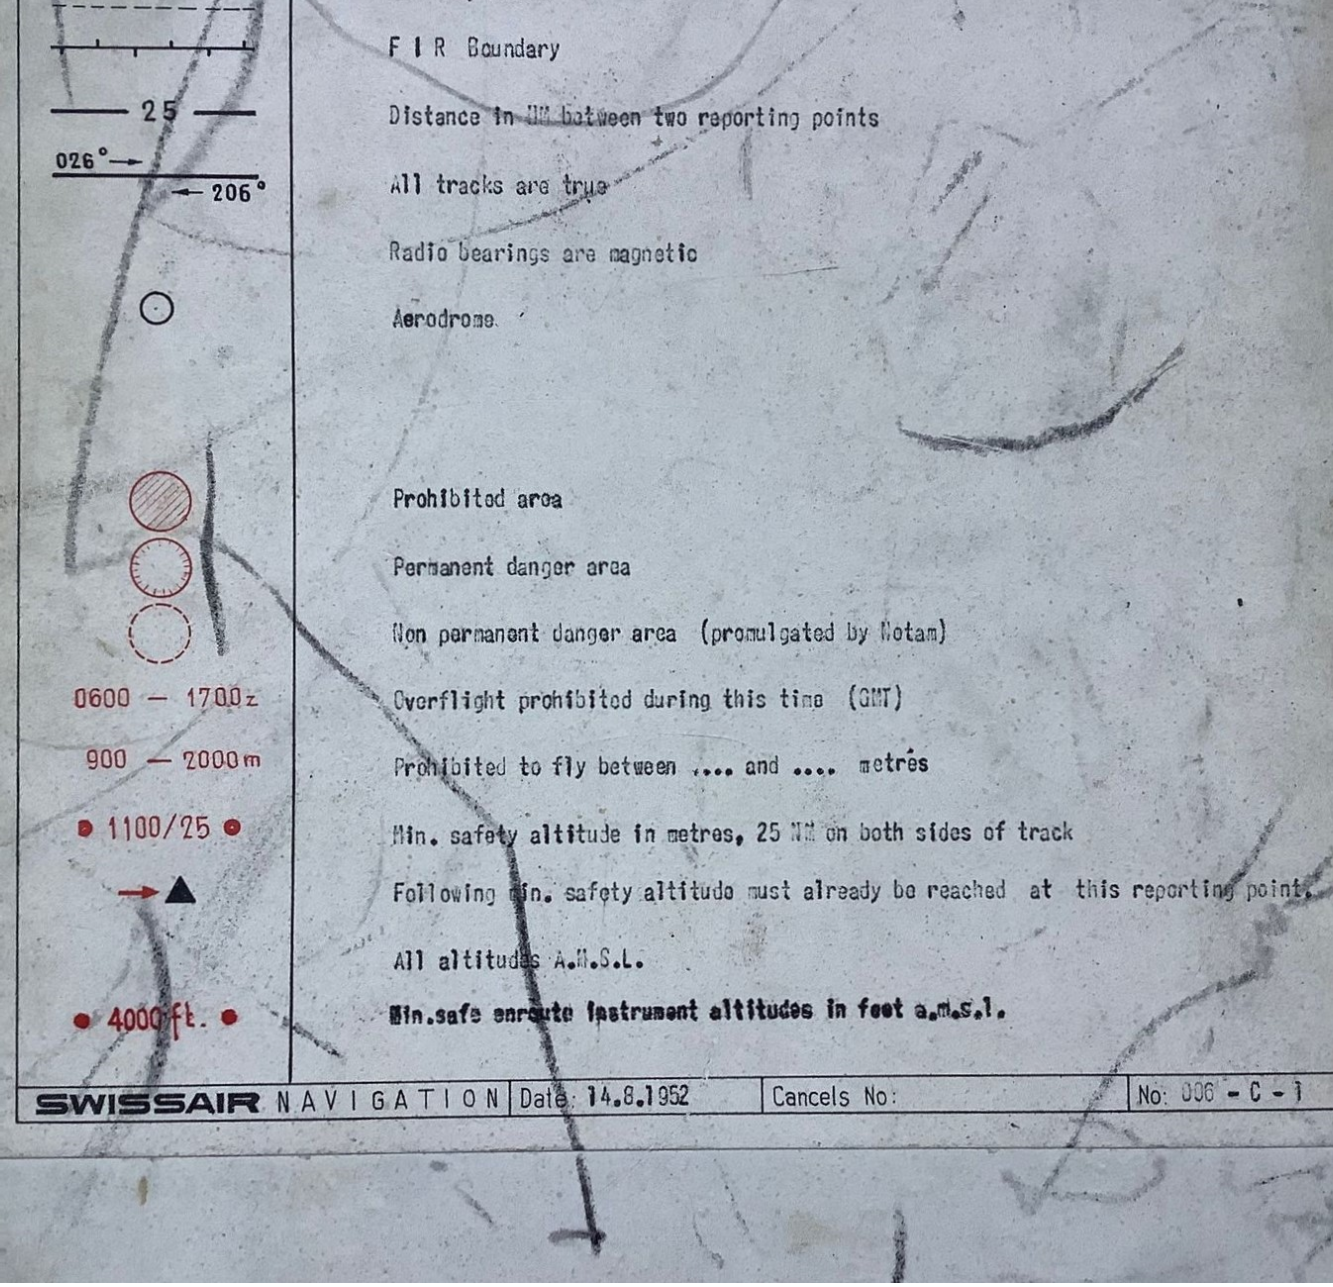 F I R Boundary
25 Distance in NM between two reporting points
026°
206° All tracks are true
Radio bearings are magnetic
Aerodrome
Prohibited area
Permanent danger area
Non permanent danger area (promulgated by Notam)
0600 — 1700z Overflight prohibited during this time (GMT)
900 — 2000m Prohibited to fly between .... and .... metres
1100/25 Min. safety altitude in metres, 25 NM on both sides of track
Following min. safety altitude must already be reached at this reporting point.
All altitudes A.M.S.L.
4000 ft. Min.safe enroute instrument altitudes in feet a.m.s.l.
SWISSAIR NAVIGATION Date: 14.8.1952 Cancels No: No: 006 - C - 1